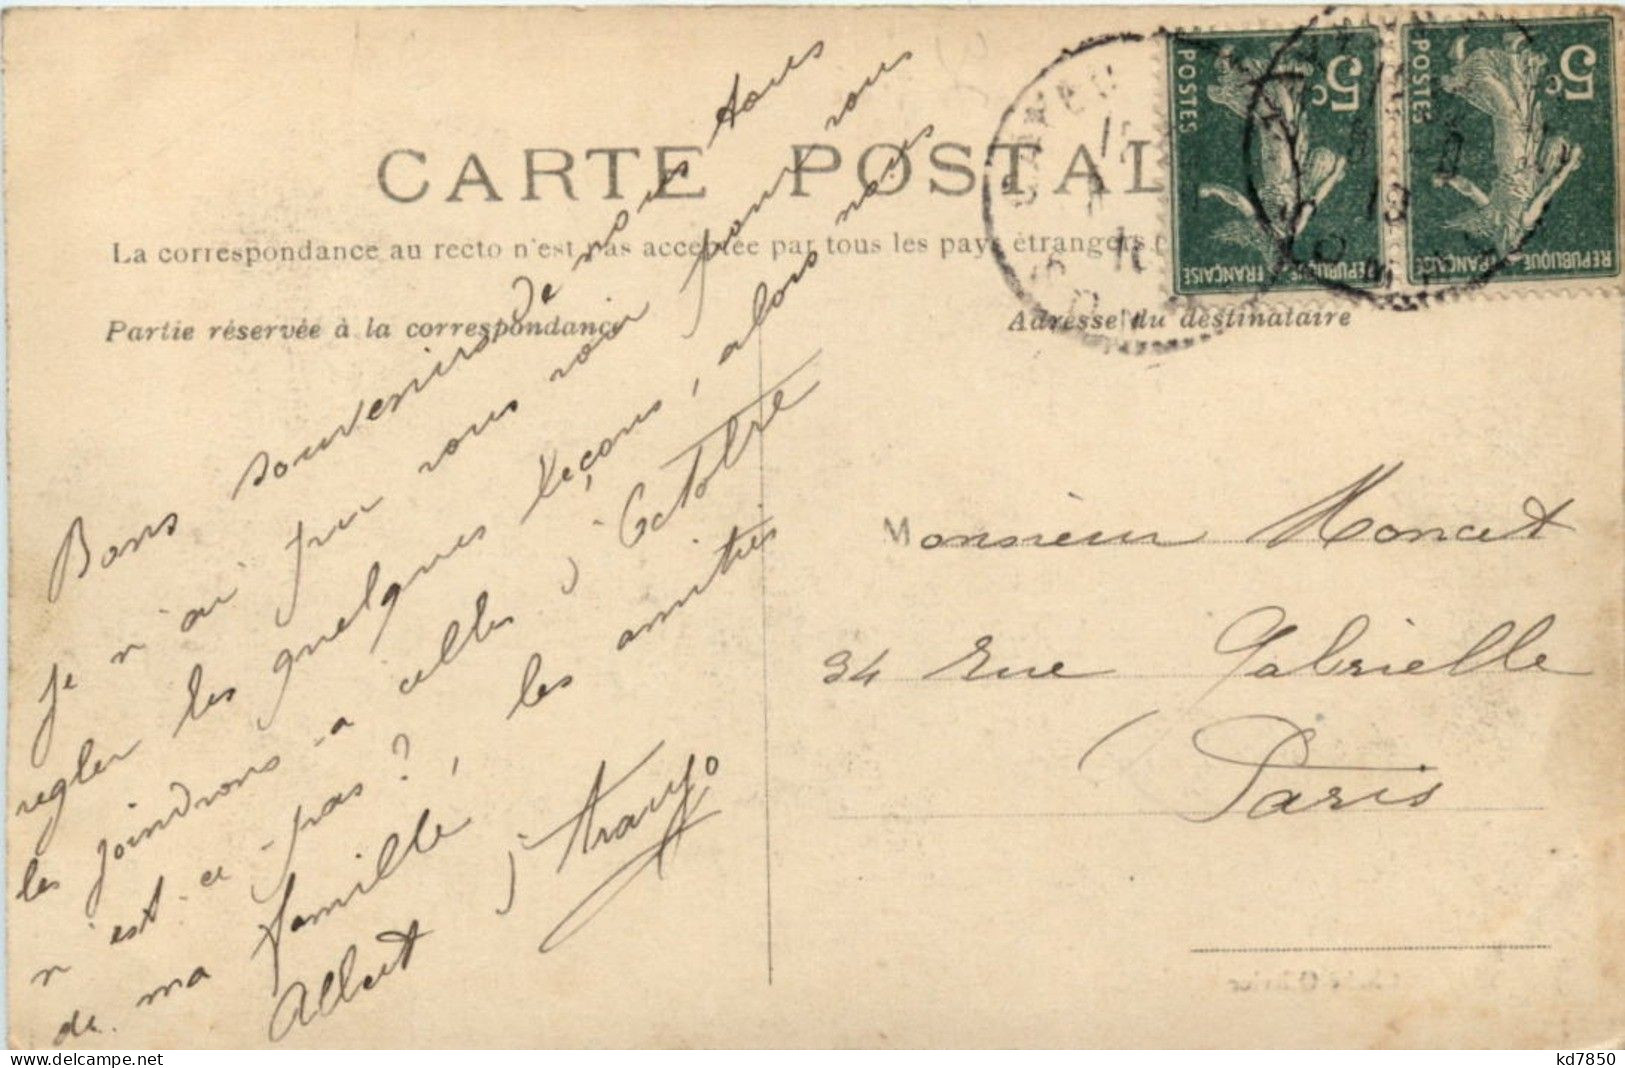 CARTE POSTALE
La correspondance au recto n'est pas acceptée par tous les pays étrangers
Partie réservée à la correspondance
Adresse du destinataire
Bons souvenirs de nous tous
Je n'ai pu vous voir pour vous
regler les quelques leçons, alors nous
les joindrons à celles d'Octobre
n'est-ce-pas? les amitiés
de ma famille,
Albert
Monsieur Moncet
34 Rue Gabrielle
Paris
5c
POSTES
REPUBLIQUE FRANÇAISE
5c
POSTES
REPUBLIQUE FRANÇAISE
kd7850